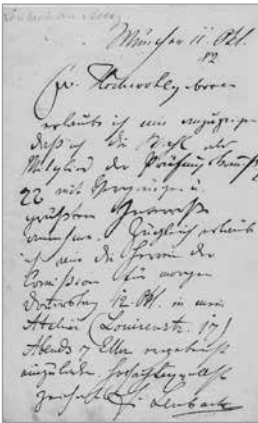 München 11. Okt.
82
Ew. Hochwohlgeboren
erlaube ich mir anzuzeigen
daß ich die Wahl als
Mitglied der
22 mit Vergnügen u.
größtem Interesse
annehme. Zugleich erlaube
ich mir die Herren der
Comission für morgen
Donnerstag 12. Okt. in mein
Atelier (Louisenstr. 17)
Abends 7 Uhr ergebenst
einzuladen. Hochachtungsvollst
zeichnet F. Lenbach